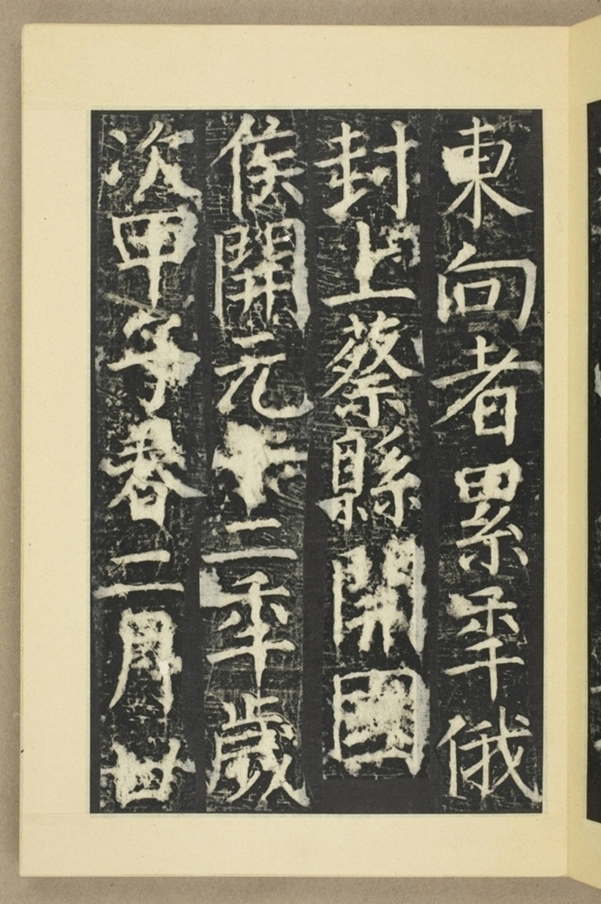 東向者累年俄
封上蔡縣開國
侯開元十二年歲
次甲子春二月廿